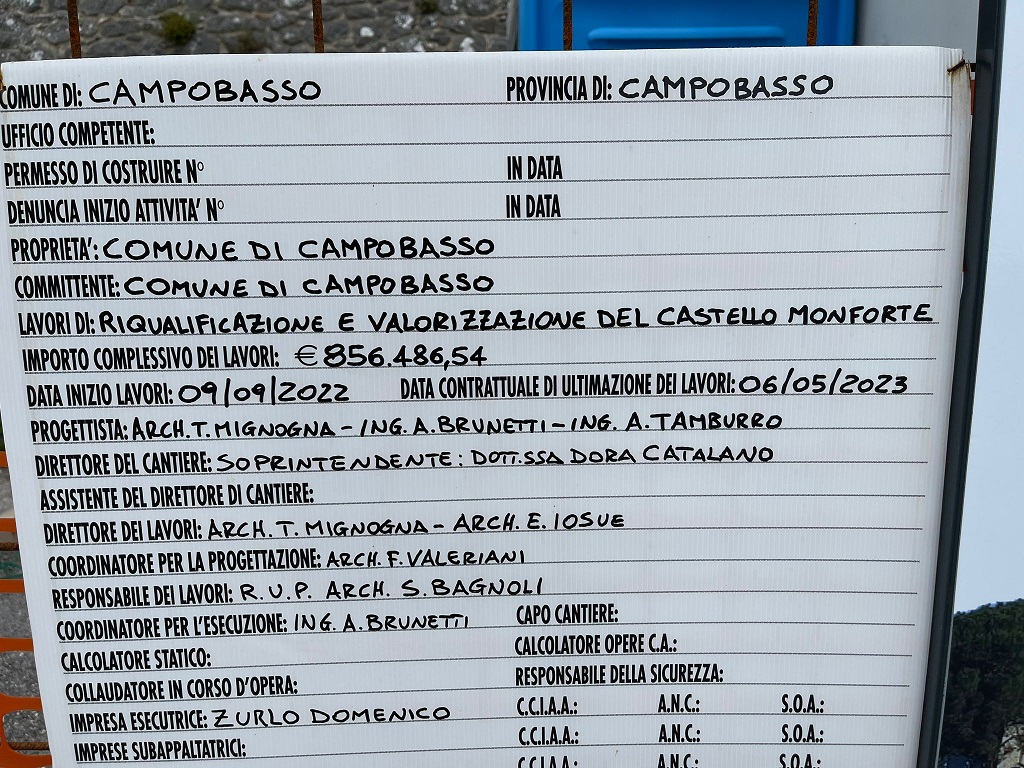 COMUNE DI: CAMPOBASSO PROVINCIA DI: CAMPOBASSO
UFFICIO COMPETENTE:
PERMESSO DI COSTRUIRE N° IN DATA
DENUNCIA INIZIO ATTIVITA' N° IN DATA
PROPRIETA': COMUNE DI CAMPOBASSO
COMMITTENTE: COMUNE DI CAMPOBASSO
LAVORI DI: RIQUALIFICAZIONE E VALORIZZAZIONE DEL CASTELLO MONFORTE
IMPORTO COMPLESSIVO DEI LAVORI: € 856.486,54
DATA INIZIO LAVORI: 09/09/2022 DATA CONTRATTUALE DI ULTIMAZIONE DEI LAVORI: 06/05/2023
PROGETTISTA: ARCH. T. MIGNOGNA - ING. A. BRUNETTI - ING. A. TAMBURRO
DIRETTORE DEL CANTIERE: SOPRINTENDENTE: DOTT.SSA DORA CATALANO
ASSISTENTE DEL DIRETTORE DI CANTIERE:
DIRETTORE DEI LAVORI: ARCH. T. MIGNOGNA - ARCH. E. IOSUE
COORDINATORE PER LA PROGETTAZIONE: ARCH. F. VALERIANI
RESPONSABILE DEI LAVORI: R.U.P. ARCH. S. BAGNOLI
COORDINATORE PER L'ESECUZIONE: ING. A. BRUNETTI CAPO CANTIERE:
CALCOLATORE STATICO: CALCOLATORE OPERE C.A.:
COLLAUDATORE IN CORSO D'OPERA: RESPONSABILE DELLA SICUREZZA:
IMPRESA ESECUTRICE: ZURLO DOMENICO C.C.I.A.A.: A.N.C.: S.O.A.:
IMPRESE SUBAPPALTATRICI: C.C.I.A.A.: A.N.C.: S.O.A.:
C.C.I.A.A.: A.N.C.: S.O.A.: